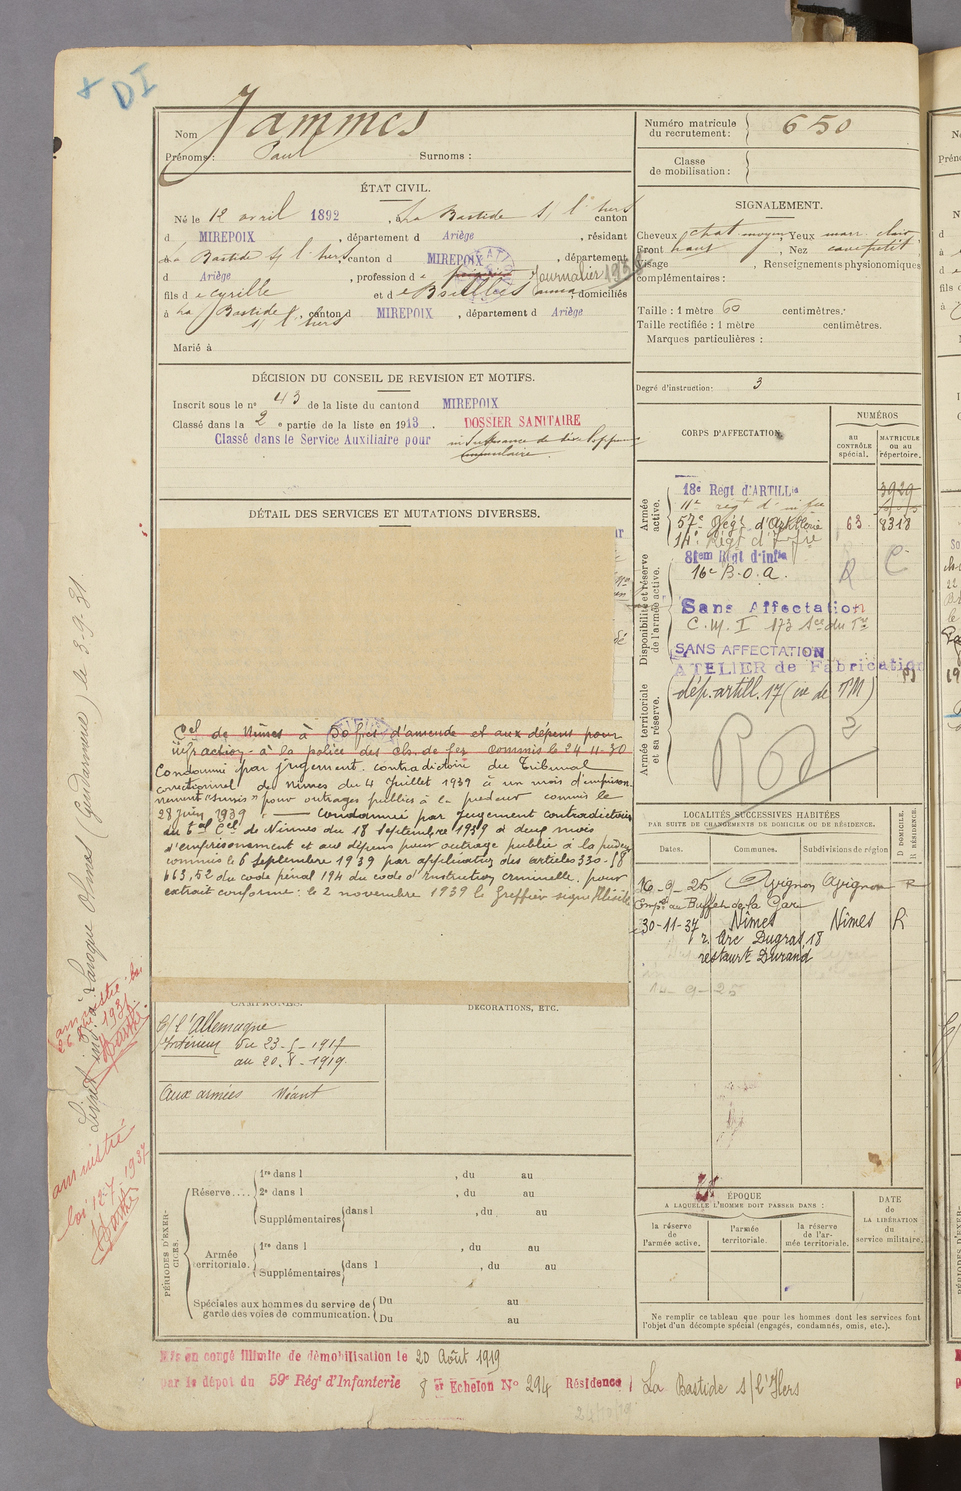 DI
Nom Jammes
Prénoms : Paul Surnoms :
Numéro matricule du recrutement : 650
Classe de mobilisation :
ÉTAT CIVIL.
Né le 12 avril 1892, à La Bastide s/ l'hers canton
d MIREPOIX, département d Ariège, résidant
à La Bastide s/ l'hers, canton d MIREPOIX, département
d Ariège, profession de Journalier
fils de Cyrille et de domiciliés
à La Bastide s/ l'hers, canton d MIREPOIX, département d Ariège
Marié à
SIGNALEMENT.
Cheveux chat. moyen, Yeux marr. clair
Front haut, Nez cave petit
Visage , Renseignements physionomiques
complémentaires :
Taille : 1 mètre 60 centimètres.
Taille rectifiée : 1 mètre centimètres.
Marques particulières :
Degré d'instruction : 3
DÉCISION DU CONSEIL DE REVISION ET MOTIFS.
Inscrit sous le n° 43 de la liste du canton d MIREPOIX
Classé dans la 2 e partie de la liste en 1913. DOSSIER SANITAIRE
Classé dans le Service Auxiliaire pour insuffisance de
musculaire
CORPS D'AFFECTATION.
NUMÉROS
au CONTRÔLE spécial.
MATRICULE ou au répertoire.
Armée active.
18e Régt d'ARTILLie 3929
11e régt d'infie
57e Régt d'Artillerie 63 8318
14e Régt d'Infie
Disponibilité et réserve de l'armée active.
81em Régt d'infie
16e B.O.A. R C
Sans Affectation
C.M.I 173
SANS AFFECTATION
ATELIER de Fabrication
Armée territoriale et sa réserve.
dép. artill. 17 (
DÉTAIL DES SERVICES ET MUTATIONS DIVERSES.
Cel de Nîmes à 50 frs d'amende et aux dépens pour
infraction à la police des ch. de fer commis le 24-11-30
Condamné par jugement contradictoire du Tribunal
correctionnel de nimes du 4 Juillet 1939 à un mois d'emprison
nement "sursis" pour outrages publics à la pudeur commis le
28 juin 1939. — Condamné par jugement contradictoire
du Cel de Nîmes du 18 Septembre 1939 à deux mois
d'emprisonnement et aux dépens pour outrage public à la pudeur
commis le 6 septembre 1939 par application des articles 330-58
463, 52 du code pénal 194 du code d'instruction criminelle. pour
extrait conforme : le 2 novembre 1939 le Greffier signé
LOCALITÉS SUCCESSIVES HABITÉES
PAR SUITE DE CHANGEMENTS DE DOMICILE OU DE RÉSIDENCE.
Dates. Communes. Subdivisions de région D DOMICILE. R RÉSIDENCE.
16-9-25 Avignon Avignon R
Empé au Buffet de la Gare
30-11-37 Nîmes Nîmes R
r. Arc Dugras, 18
restaurt Durand
CAMPAGNES.
DÉCORATIONS, ETC.
C/ l'Allemagne
Intérieur du 23-5-1917
au 20-8-1919
Aux armées Néant
PÉRIODES D'EXERCICES.
Réserve.... 1re dans l , du au
2e dans l , du au
Supplémentaires dans l , du au
Armée territoriale. 1re dans l , du au
Supplémentaires dans l , du au
Spéciales aux hommes du service de garde des voies de communication. Du au
Du au
ÉPOQUE
A LAQUELLE L'HOMME DOIT PASSER DANS :
la réserve de l'armée active.
l'armée territoriale.
la réserve de l'armée territoriale.
DATE de LA LIBÉRATION du service militaire.
Ne remplir ce tableau que pour les hommes dont les services font
l'objet d'un décompte spécial (engagés, condamnés, omis, etc.).
Mis en congé illimité de démobilisation le 20 Août 1919
par le dépot du 59e Régt d'Infanterie 8 er Echelon N° 294 Résidence La Bastide s/l'Hers
Livret ind. à Laroque Olmes (Gendarmerie) le 3-9-31
amnistié loi
1931
amnistié
loi 12-7-1937